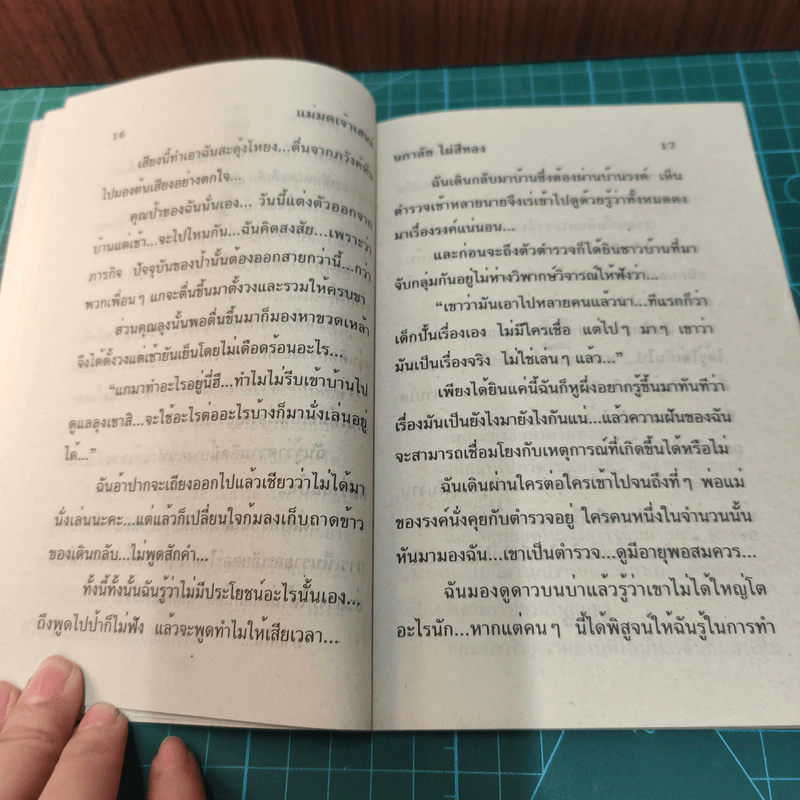 16
แม่มดเจ้าเสน่ห์
เสียงนี้ทำเอาฉันสะดุ้งโหยง...ตื่นจากภวังค์หัน
ไปมองต้นเสียงอย่างตกใจ...
คุณป้าของฉันนั่นเอง... วันนี้แต่งตัวออกจาก
บ้านแต่เช้า...จะไปไหนกัน...ฉันคิดสงสัย...เพราะว่า
ภารกิจ ปัจจุบันของป้านั้นต้องออกสายกว่านี้...กว่า
พวกเพื่อนๆ แกจะตื่นขึ้นมาตั้งวงและรวมให้ครบขา
ส่วนคุณลุงนั้นพอตื่นขึ้นมาก็มองหาขวดเหล้า
จึงได้ตั้งวงแต่เช้ายันเย็นโดยไม่เดือดร้อนอะไร...
“แกมาทำอะไรอยู่นี่ฮึ...ทำไมไม่รีบเข้าบ้านไป
ดูแลลุงเขาสิ...จะใช้อะไรต่ออะไรบ้างก็มานั่งเล่นอยู่
ได้...”
ฉันอ้าปากจะเถียงออกไปแล้วเชียวว่าไม่ได้มา
นั่งเล่นนะคะ...แต่แล้วก็เปลี่ยนใจก้มลงเก็บถาดข้าว
ของเดินกลับ...ไม่พูดสักคำ...
ทั้งนี้ทั้งนั้นฉันรู้ว่าไม่มีประโยชน์อะไรนั้นเอง...
ถึงพูดไปป้าก็ไม่ฟัง แล้วจะพูดทำไมให้เสียเวลา...
นภาลัย ไผ่สีทอง
17
ฉันเดินกลับมาบ้านซึ่งต้องผ่านบ้านรงค์ เห็น
ตำรวจเข้าหลายนายจึงเร่เข้าไปดูด้วยรู้ว่าทั้งหมดคง
มาเรื่องรงค์แน่นอน...
และก่อนจะถึงตัวตำรวจก็ได้ยินชาวบ้านที่มา
จับกลุ่มกันอยู่ไม่ห่างวิพากษ์วิจารณ์ให้ฟังว่า...
“เขาว่ามันเอาไปหลายคนแล้วนา...ทีแรกก็ว่า
เด็กปั้นเรื่องเอง ไม่มีใครเชื่อ แต่ไปๆ มาๆ เขาว่า
มันเป็นเรื่องจริง ไม่ใช่เล่นๆ แล้ว...”
เพียงได้ยินแค่นี้ฉันก็หูผึ่งอยากรู้ขึ้นมาทันทีว่า
เรื่องมันเป็นยังไงมายังไงกันแน่...แล้วความฝันของฉัน
จะสามารถเชื่อมโยงกับเหตุการณ์ที่เกิดขึ้นได้หรือไม่
ฉันเดินผ่านใครต่อใครเข้าไปจนถึงที่ๆ พ่อแม่
ของรงค์นั่งคุยกับตำรวจอยู่ ใครคนหนึ่งในจำนวนนั้น
หันมามองฉัน...เขาเป็นตำรวจ...ดูมีอายุพอสมควร...
ฉันมองดูดาวบนบ่าแล้วรู้ว่าเขาไม่ได้ใหญ่โต
อะไรนัก...หากแต่คนๆ นี้ได้พิสูจน์ให้ฉันรู้ในการทำ